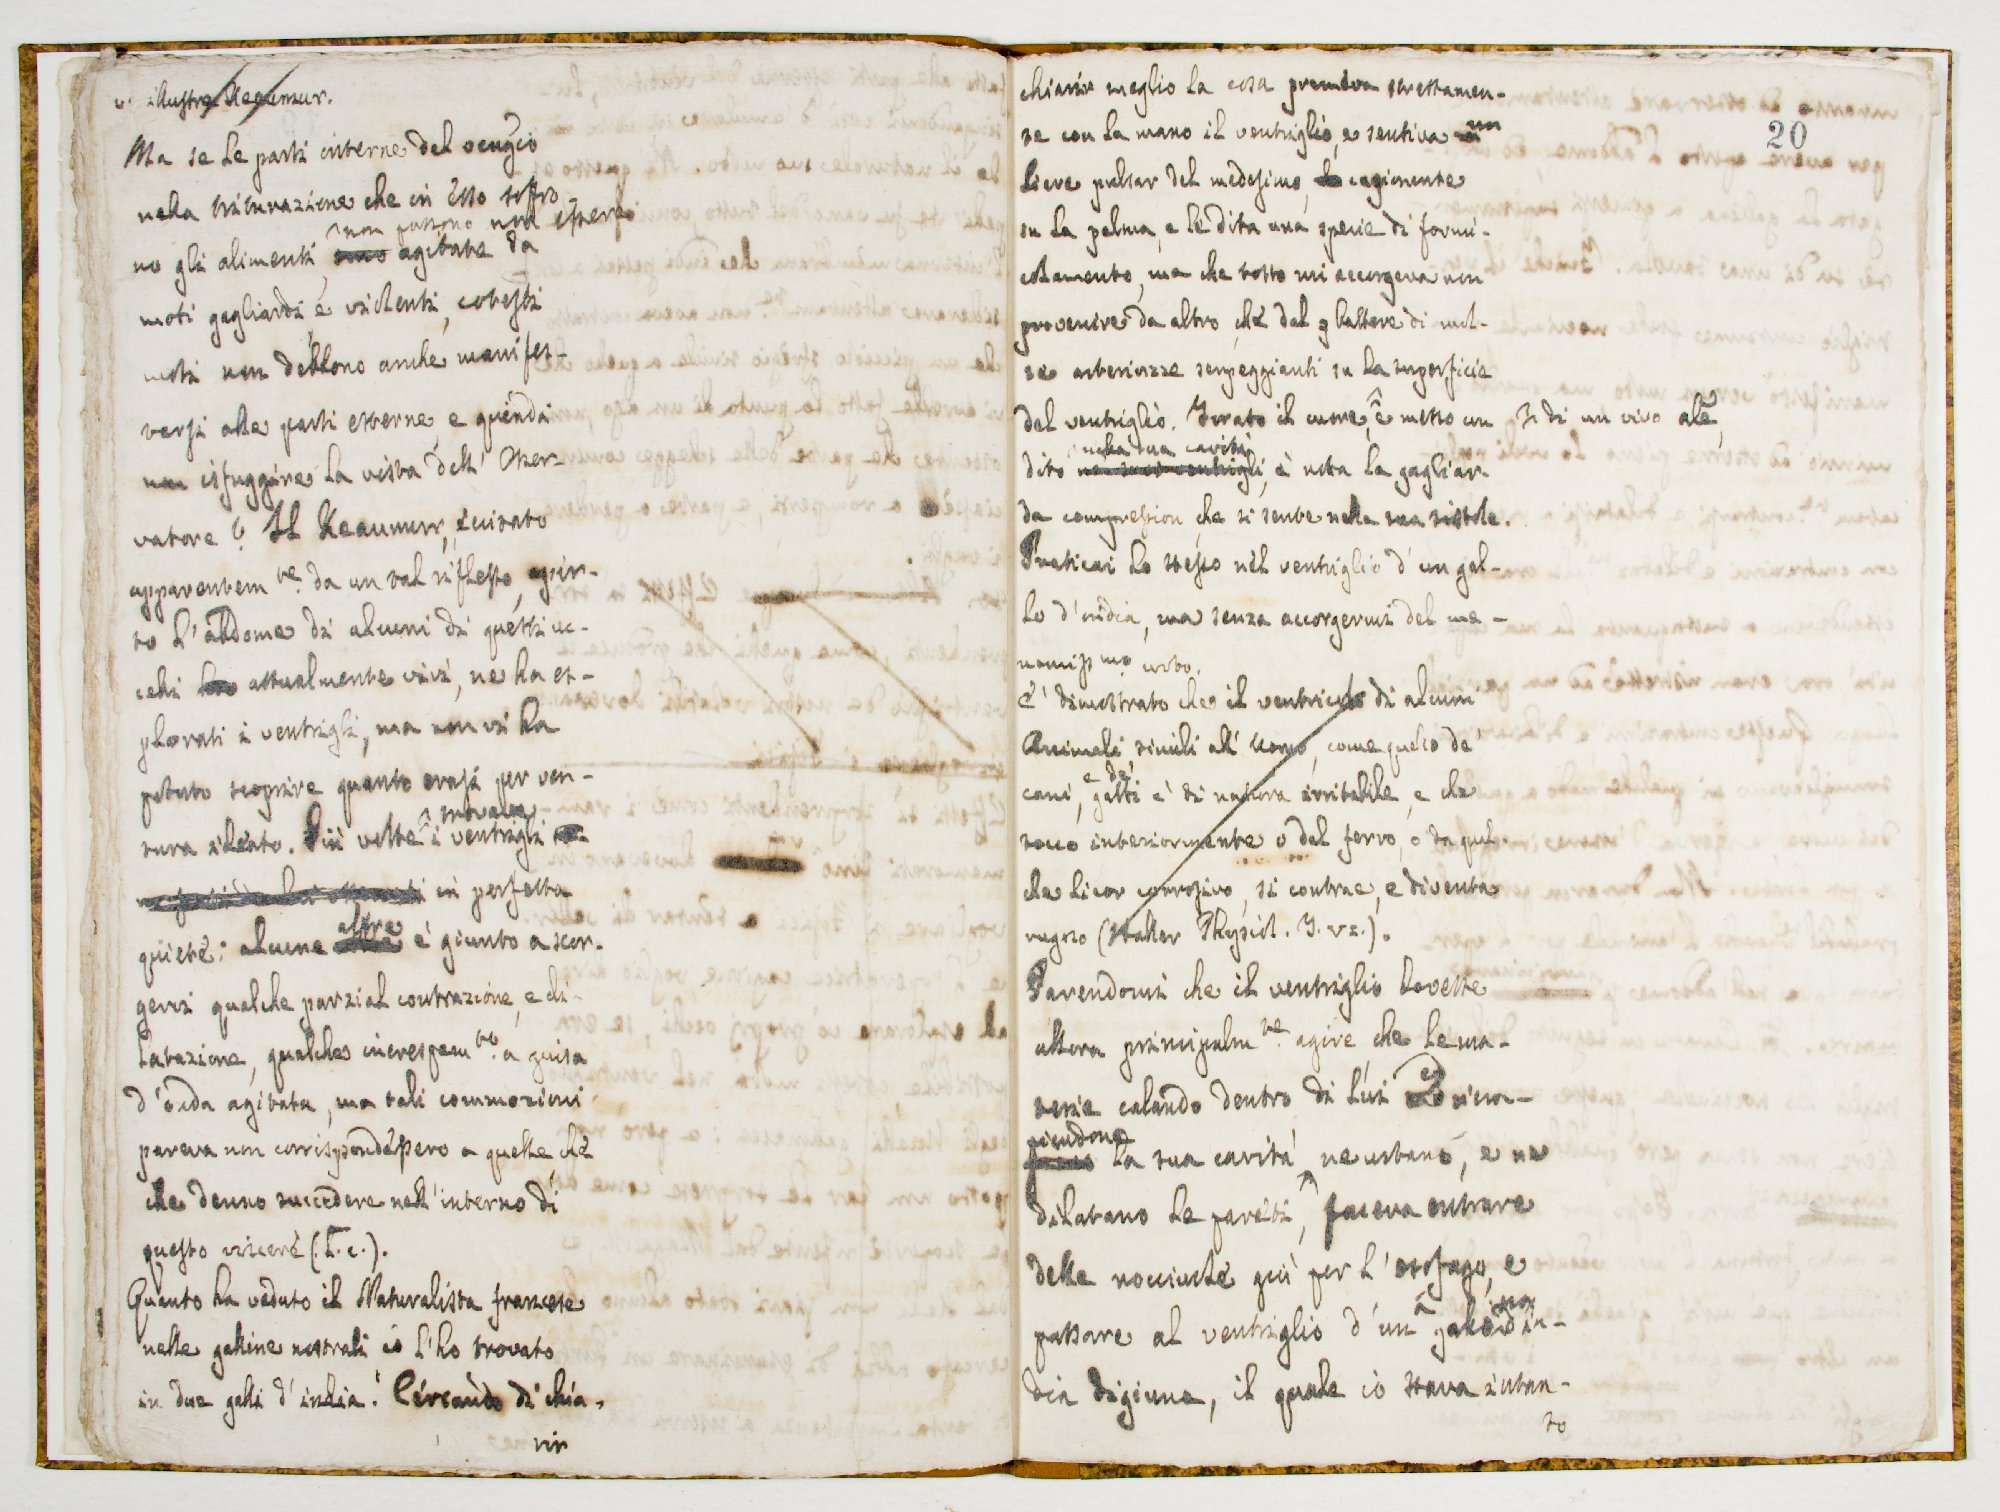 illustre Reaumur.
Ma se le parti interne del
nella triturazione che in esso soffro-
non possono non essere
no gli alimenti, sono agitate da
moti gagliardi, e violenti, cotesti
moti non debbono anche manifes-
tarsi alle parti esterne, e quindi
non isfuggire la vista dell' Osser-
vatore? Il Reaumur, eccitato
apparentem.te da un tal riflesso, aper-
to l' abdome di alcuni di questi uc-
celli attualmente vivi, ne ha es-
plorati i ventrigli, ma non vi ha
potuto scoprire quanto erasi per ven-
trovava
tura ideato. Più volte i ventrigli
in perfetta
altre
quiete: alcune è giunto a scor-
gervi qualche parzial contrazione, e di-
latazione, qualche increspam.to a guisa
d' onda agitata, ma tali commozioni
pareva non corrispondessero a quelle che
che denno succedere nell' interno di
questo viscere (l. c.).
Quanto ha veduto il Naturalista francese
nelle galline nostrali io l' ho trovato
in due galli d' india. Cercando di chia-
rir
20
chiarir meglio la cosa premeva strettamen-
te con la mano il ventriglio, e sentiva un
lieve pulsar del medesimo, cagionante
su la palma, e le dita una specie di formi-
colamento, ma che tosto mi accorgeva non
provenire da altro, che dal battere di mol-
te arteriuzze serpeggianti su la superficie
del ventriglio. Forato il cuore, e messo un
di un vivo
nella sua cavità
dito ne' suoi ventrigli, è nota la gagliar-
da compression, che si sente nella sua sistole.
Praticai lo stesso nel ventriglio d' un gal-
lo d' india, ma senza accorgermi del me-
nomiss.mo urto.
E' dimostrato che il ventricolo di alcuni
Animali simili all' Uomo, come quello de'
e de'
cani, gatti è di natura irritabile, e che
tocco interiormente o dal ferro, o da qual-
che licor corrosivo, si contrae, e diventa
rugoso (Haller Physiol. T. VI.).
Parendomi che il ventriglio dovesse
allora principalm.te agire, che le ma-
terie calando dentro di lui ed riem-
piendone
la sua cavità ne urtano, e ne
dilatano le pareti, faceva entrare
delle nocciuole giù per l' esofago, e
passare al ventriglio d' un gallo d' in-
dia digiuna, il quale io stava intan-
to